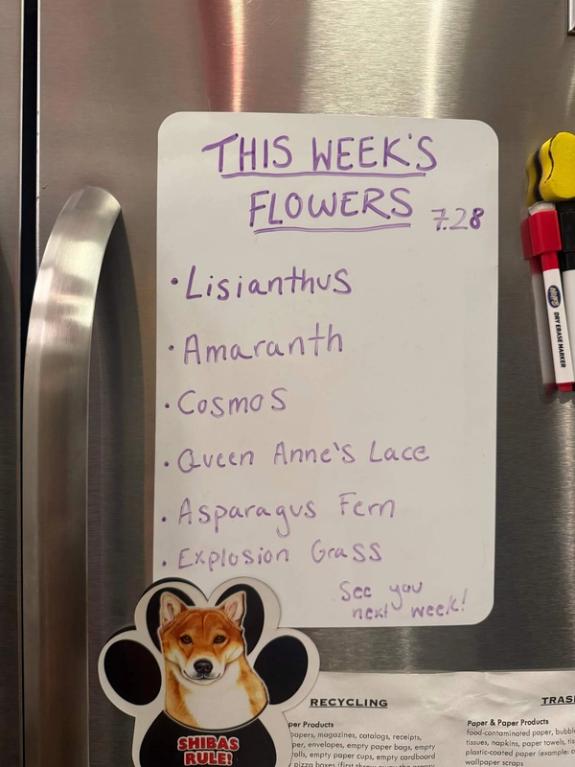 THIS WEEK'S
FLOWERS 7.28
• Lisianthus
• Amaranth
• Cosmos
• Queen Anne's Lace
• Asparagus Fern
• Explosion Grass
See you
next week!
SHIBAS
RULE!
RECYCLING
per Products
papers, magazines, catalogs, receipts,
per, envelopes, empty paper bags, empty
olls, empty paper cups, empty cardboard
pizza boxes
TRAS
Paper & Paper Products
food-contaminated paper, bubbl
tissues, napkins, paper towels, tis
plastic-coated paper (example: c
wallpaper scraps
DRY ERASE MARKER